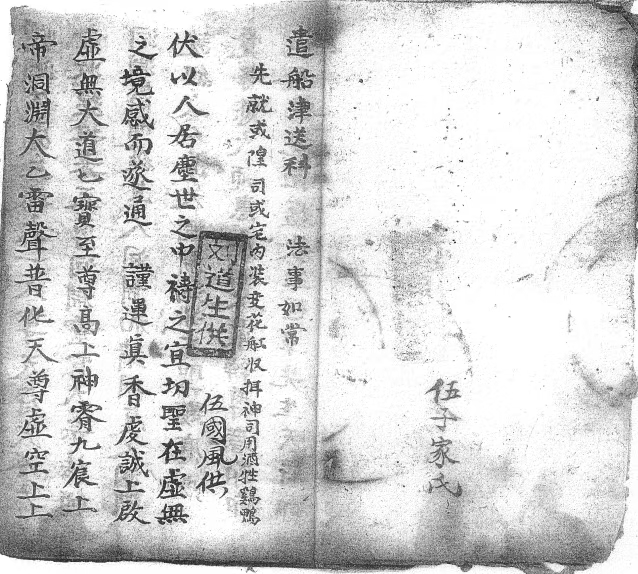 伍子家氏
遣船津送科 法事如常
先就或隍司或宅内裝變花船収拜神司用酒牲鷄鴨
伍國風供
刘道生供
伏以人居塵世之中禱之宜切聖在虛無
之境感而遂通 謹運眞香虔誠上啟
虛無大道七寶至尊高上神霄九宸上
帝洞淵大乙雷聲普化天尊虛空上上